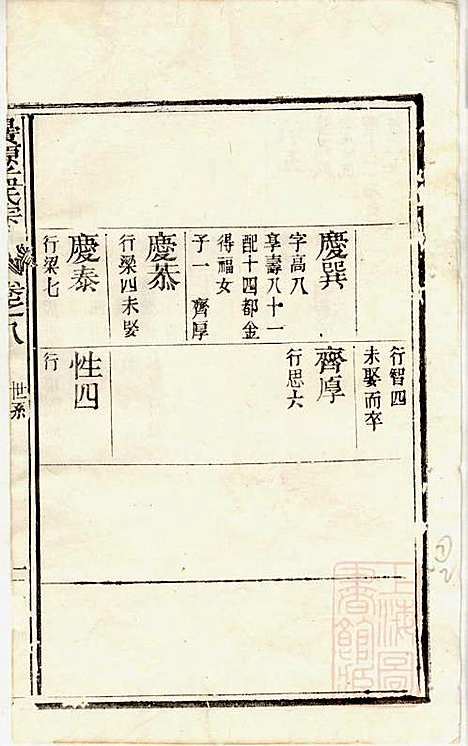 慶巽
字高八
享壽八十一
配十四都金
得福女
子一 齊厚
慶恭
行梁四未娶
慶泰
行梁七
行智四
未娶而卒
齊厚
行思六
性四
行
卷之八
世系
一
上海圖
書館藏